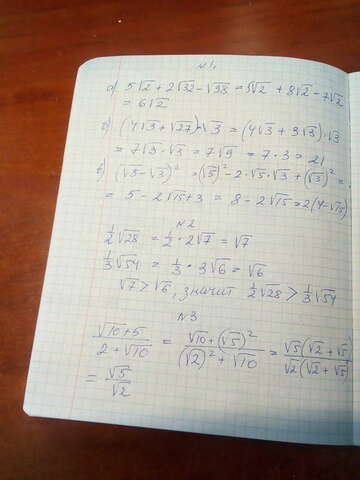 №1
а) 5√2 + 2√32 - √98 = 5√2 + 8√2 - 7√2
= 6√2
б) (4√3 + √27)·√3 = (4√3 + 3√3)·√3
= 7√3·√3 = 7√9 = 7·3 = 21
в) (√5 - √3)² = (√5)² - 2·√5·√3 + (√3)² =
= 5 - 2√15 + 3 = 8 - 2√15 = 2(4 - √15)
№2
1/2√28 = 1/2 · 2√7 = √7
1/3√54 = 1/3 · 3√6 = √6
√7 > √6, значит 1/2√28 > 1/3√54
№3
(√10 + 5)/(2 + √10) = (√10 + (√5)²)/((√2)² + √10) = √5(√2 + √5)/√2(√2 + √5)
= √5/√2